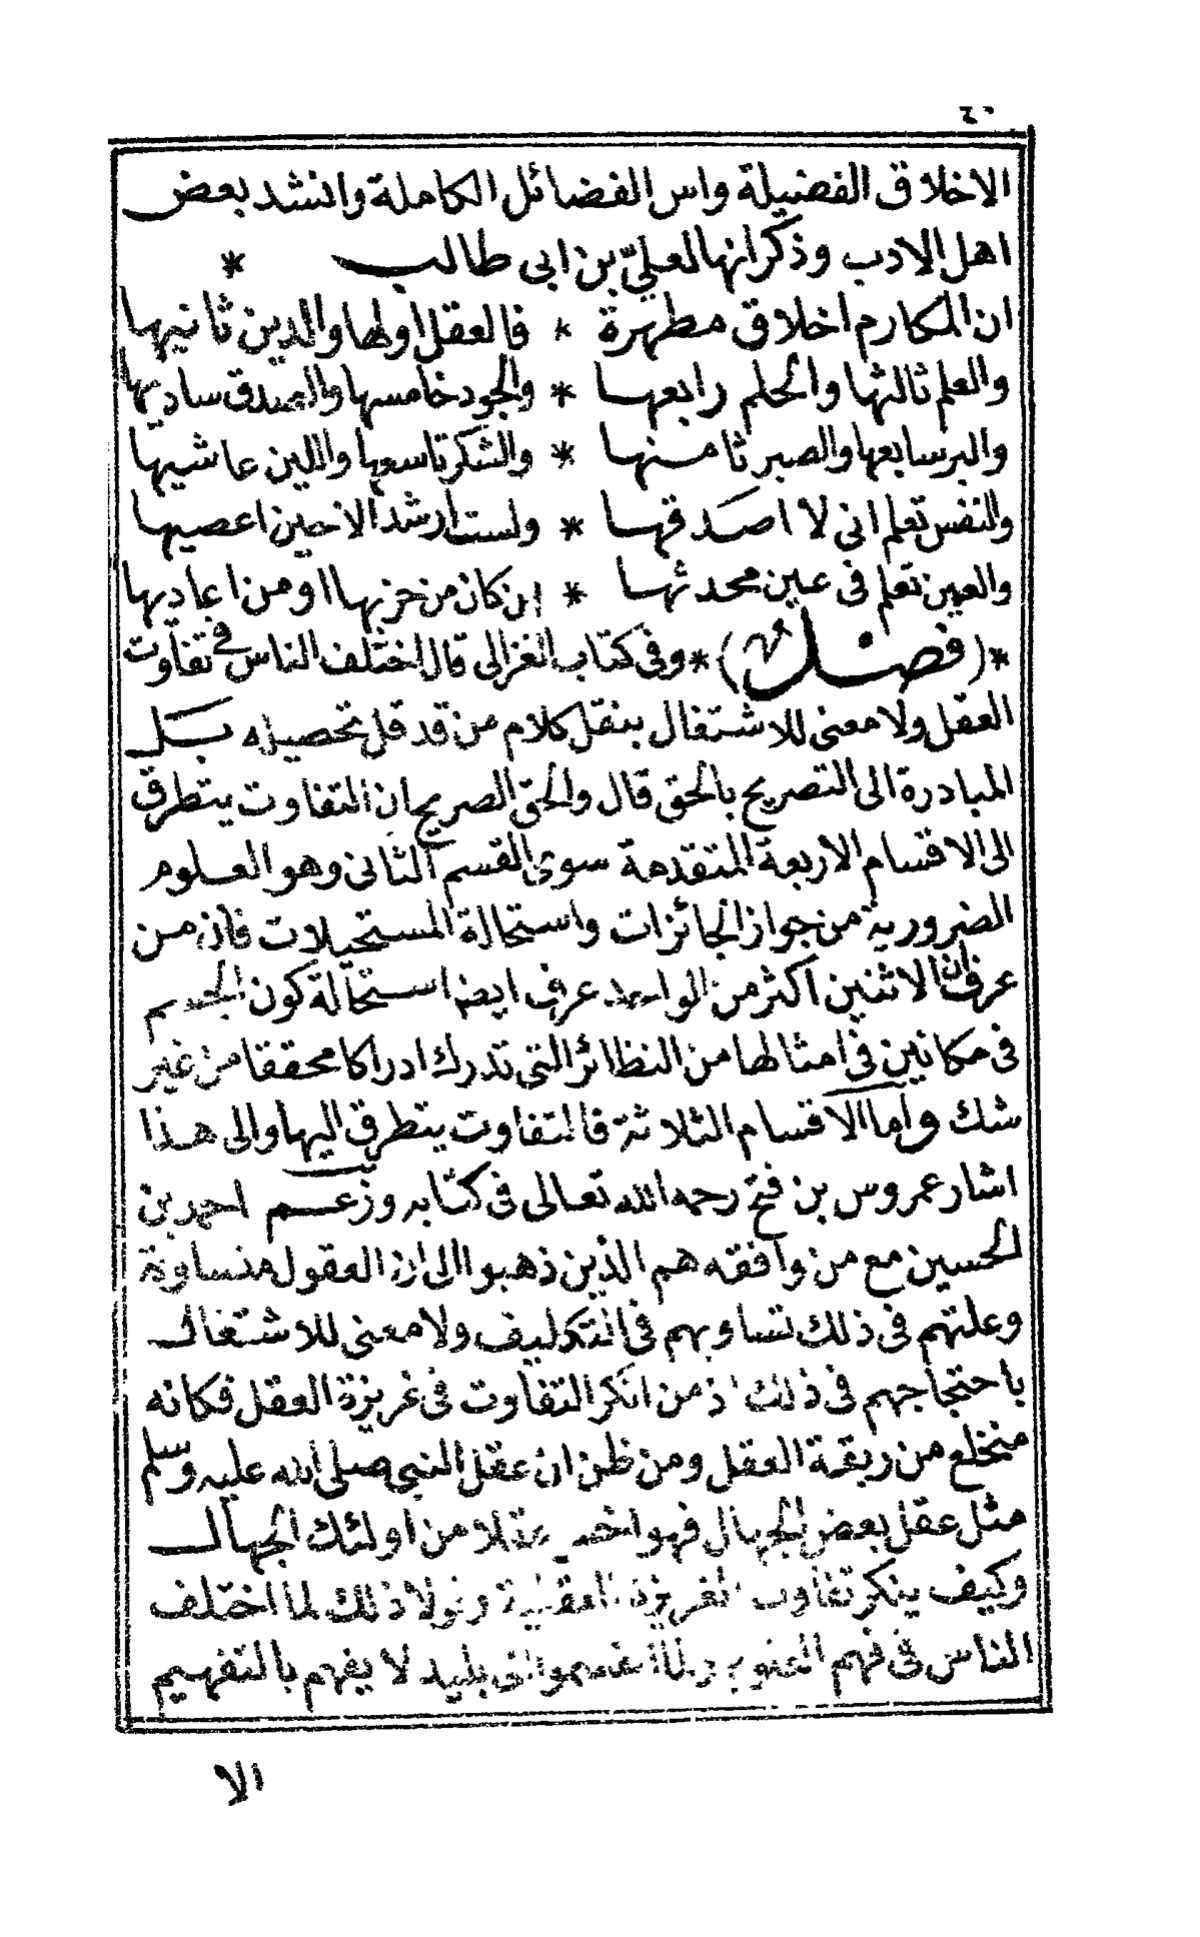 الاخلاق الفضيلة واس الفضائل الكاملة وانشد بعض
اهل الادب وذكر انها لعليّ بن ابى طالب *
ان المكارم اخلاق مطهرة * فالعقل اولها والدين ثانيها
والعلم ثالثها والحلم رابعها * والجود خامسها والصدق ساديها
والبر سابعها والصبر ثامنها * والشكر تاسعها واللين عاشيها
والنفس تعلم انى لا اصدقها * ولست ارشد الا حين اعصيها
والعين تعلم فى عين محدثها * ان كان من حزبها او من اعاديها
*(فصل)* وفى كتاب الغزالى قال اختلف الناس فى تفاوت
العقل ولا معنى للاشتغال بنقل كلام من قد قل تحصيله بل
المبادرة الى التصريح بالحق قال والحق الصريح ان التفاوت يتطرق
الى الاقسام الاربعة المتقدمة سوى القسم الثانى وهو العلوم
الضرورية من جواز الجائزات واستحالة المستحيلات فان من
عرف ان الاثنين اكثر من الواحد عرف ايضا استحالة كون الجسم
فى مكانين فى امثالها من النظائر التى تدرك ادراكا محققا من غير
شك واما الاقسام الثلاثة فالتفاوت يتطرق اليها والى هذا
اشار عمروس بن فتح رحمه الله تعالى فى كتابه وزعم احمد بن
الحسين مع من وافقه هم الذين ذهبوا الى ان العقول متساوية
وعلتهم فى ذلك تساويهم فى التكليف ولا معنى للاشتغال
باحتجاجهم فى ذلك اذ من انكر التفاوت فى غريزة العقل فكانه
منخلع من ربقة العقل ومن ظن ان عقل النبى صلى الله عليه وسلم
مثل عقل بعض الجهال فهو اخس عقلا من اولئك الجهال
وكيف ينكر تفاوت الغريزة العقلية ولولا ذلك لما اختلف
الناس فى فهم العلوم ولما انقسموا الى بليد لا يفهم بالتفهيم
الا